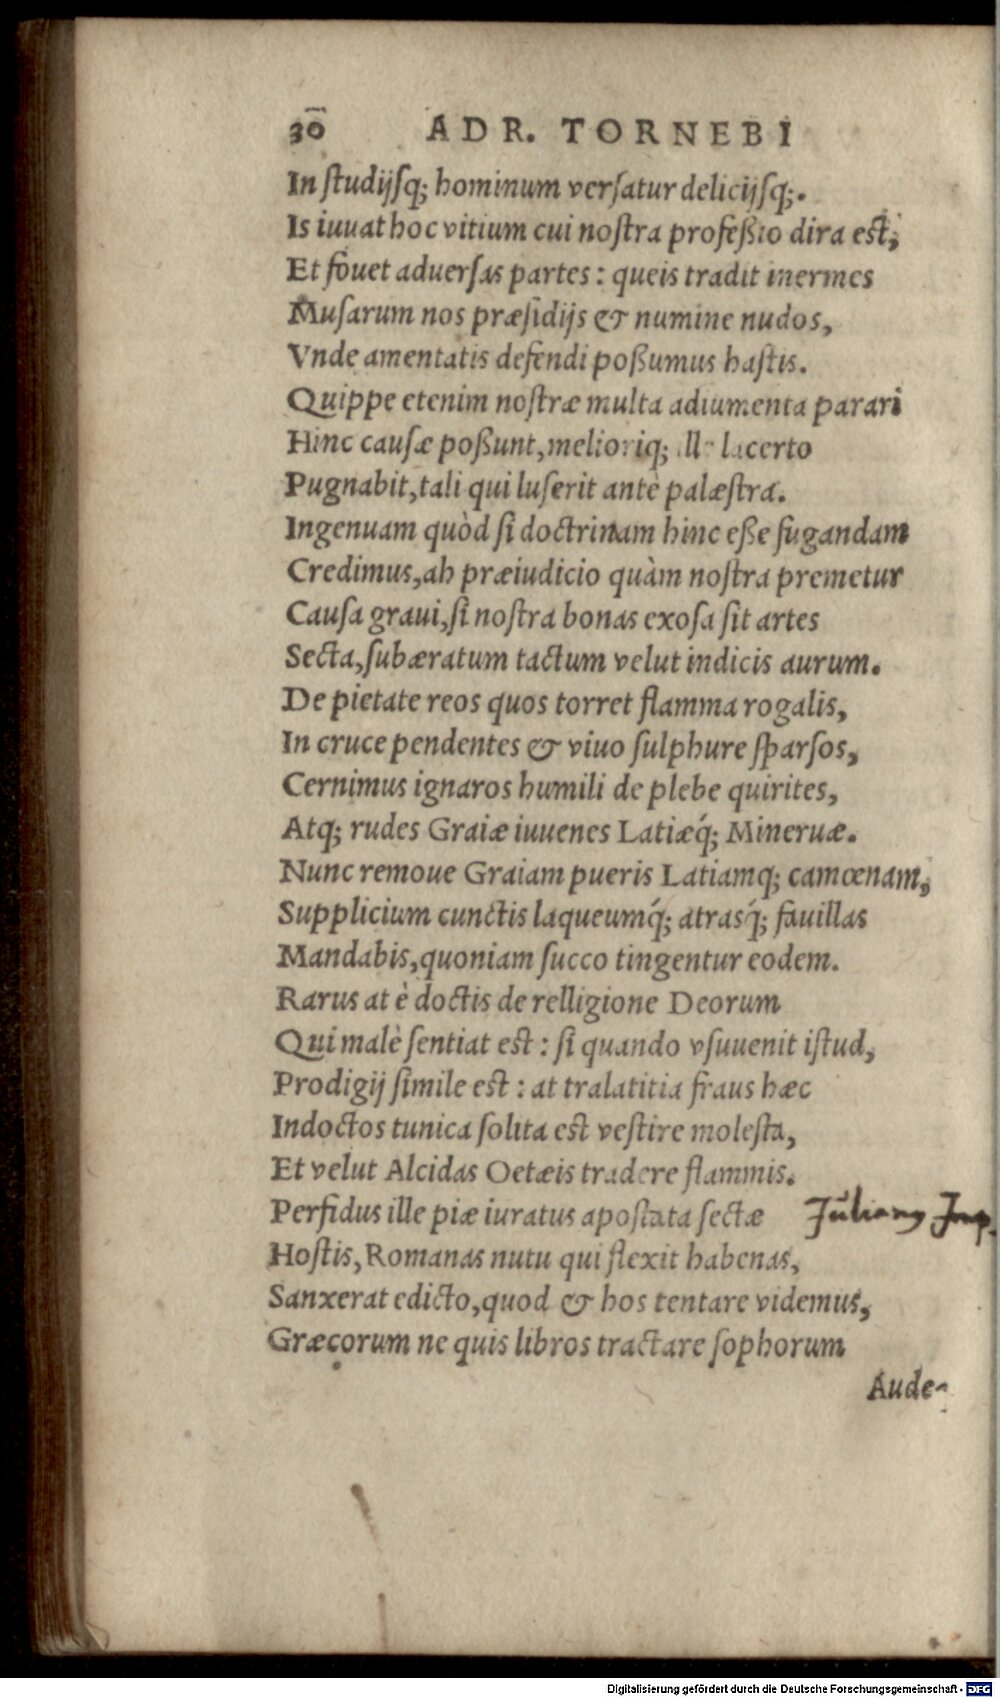 30 ADR. TORNEBI
In studijsq; hominum versatur delicijsq;.
Is iuuat hoc vitium cui nostra profeßio dira est,
Et fouet aduersas partes: queis tradit inermes
Musarum nos præsidijs & numine nudos,
Vnde amentatis defendi poßumus hastis.
Quippe etenim nostræ multa adiumenta parari
Hinc causæ poßunt, melioriq; ille lacerto
Pugnabit, tali qui luserit antè palæstra.
Ingenuam quòd si doctrinam hinc eße fugandam
Credimus, ah præiudicio quàm nostra premetur
Causa graui, si nostra bonas exosa sit artes
Secta, subæratum tactum velut indicis aurum.
De pietate reos quos torret flamma rogalis,
In cruce pendentes & viuo sulphure sparsos,
Cernimus ignaros humili de plebe quirites,
Atq; rudes Graiæ iuuenes Latiæq́; Mineruæ.
Nunc remoue Graiam pueris Latiamq; camœnam,
Supplicium cunctis laqueumq́; atrasq́; fauillas
Mandabis, quoniam succo tingentur eodem.
Rarus at è doctis de relligione Deorum
Qui malè sentiat est: si quando vsuuenit istud,
Prodigij simile est: at tralatitia fraus hæc
Indoctos tunica solita est vestire molesta,
Et velut Alcidas Oetæis tradere flammis.
Perfidus ille piæ iuratus apostata sectæ Julianus Imp.
Hostis, Romanas nutu qui flexit habenas,
Sanxerat edicto, quod & hos tentare videmus,
Græcorum ne quis libros tractare sophorum
Aude-
Digitalisierung gefördert durch die Deutsche Forschungsgemeinschaft - DFG